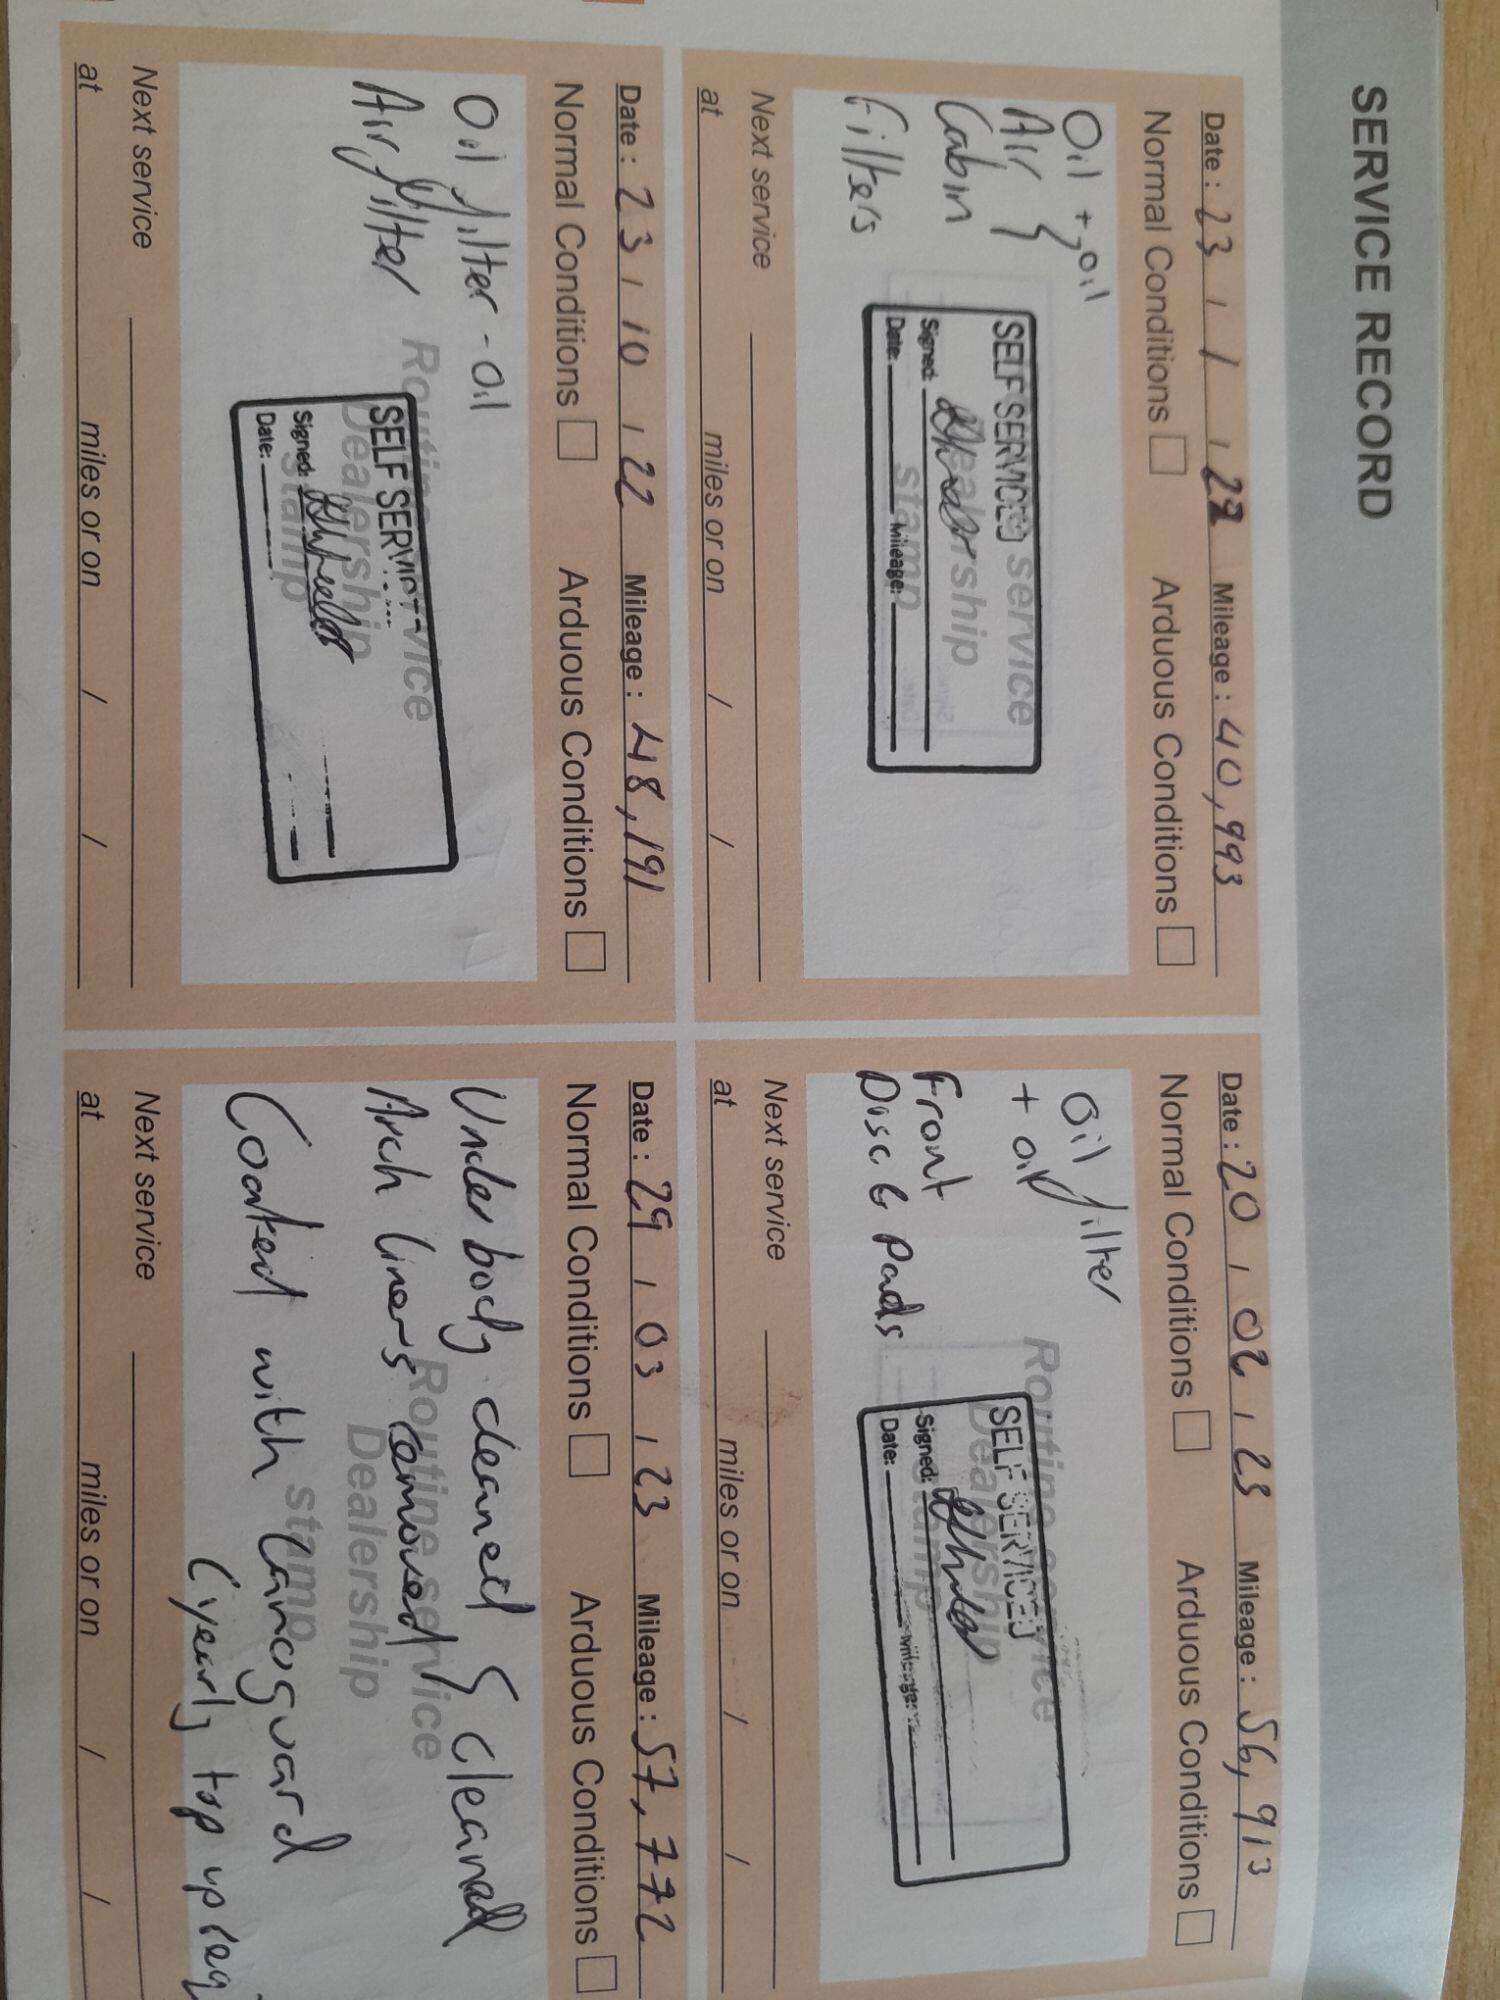 SERVICE RECORD
Date : 23 / 1 / 22 Mileage : 40,993
Normal Conditions Arduous Conditions
Oil + oil
Air }
Cabin
Filters
Routine service
Dealership
stamp
SELF SERVICED
Signed:
Date: Mileage:
Next service
at miles or on / /
Date : 20 / 02 / 23 Mileage : 56,913
Normal Conditions Arduous Conditions
Oil filter
+ oil
Front
Disc & Pads
Routine service
Dealership
stamp
SELF SERVICED
Signed:
Date: Mileage:
Next service
at miles or on / /
Date : 23 / 10 / 22 Mileage : 48,191
Normal Conditions Arduous Conditions
Oil filter - oil
Air filter
Routine service
Dealership
stamp
SELF SERVICED
Signed:
Date:
Next service
at miles or on / /
Date : 29 / 03 / 23 Mileage : 57,772
Normal Conditions Arduous Conditions
Underbody cleaned
Arch liners removed } cleaned
Coated with Lanoguard
(yearly top up req
Routine service
Dealership
stamp
Next service
at miles or on / /